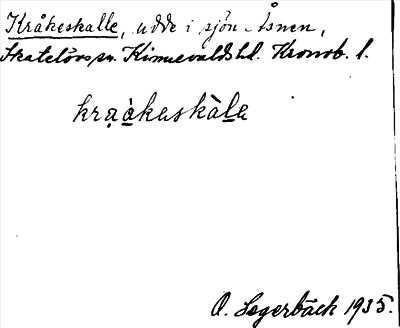 Kråkeskalle, udde i sjön Åsnen,
Skatelövs sn. Kinnevalds hd. Kronob. l.
krạạ̀kɐskàlɐ
O. Segerbäck 1935.